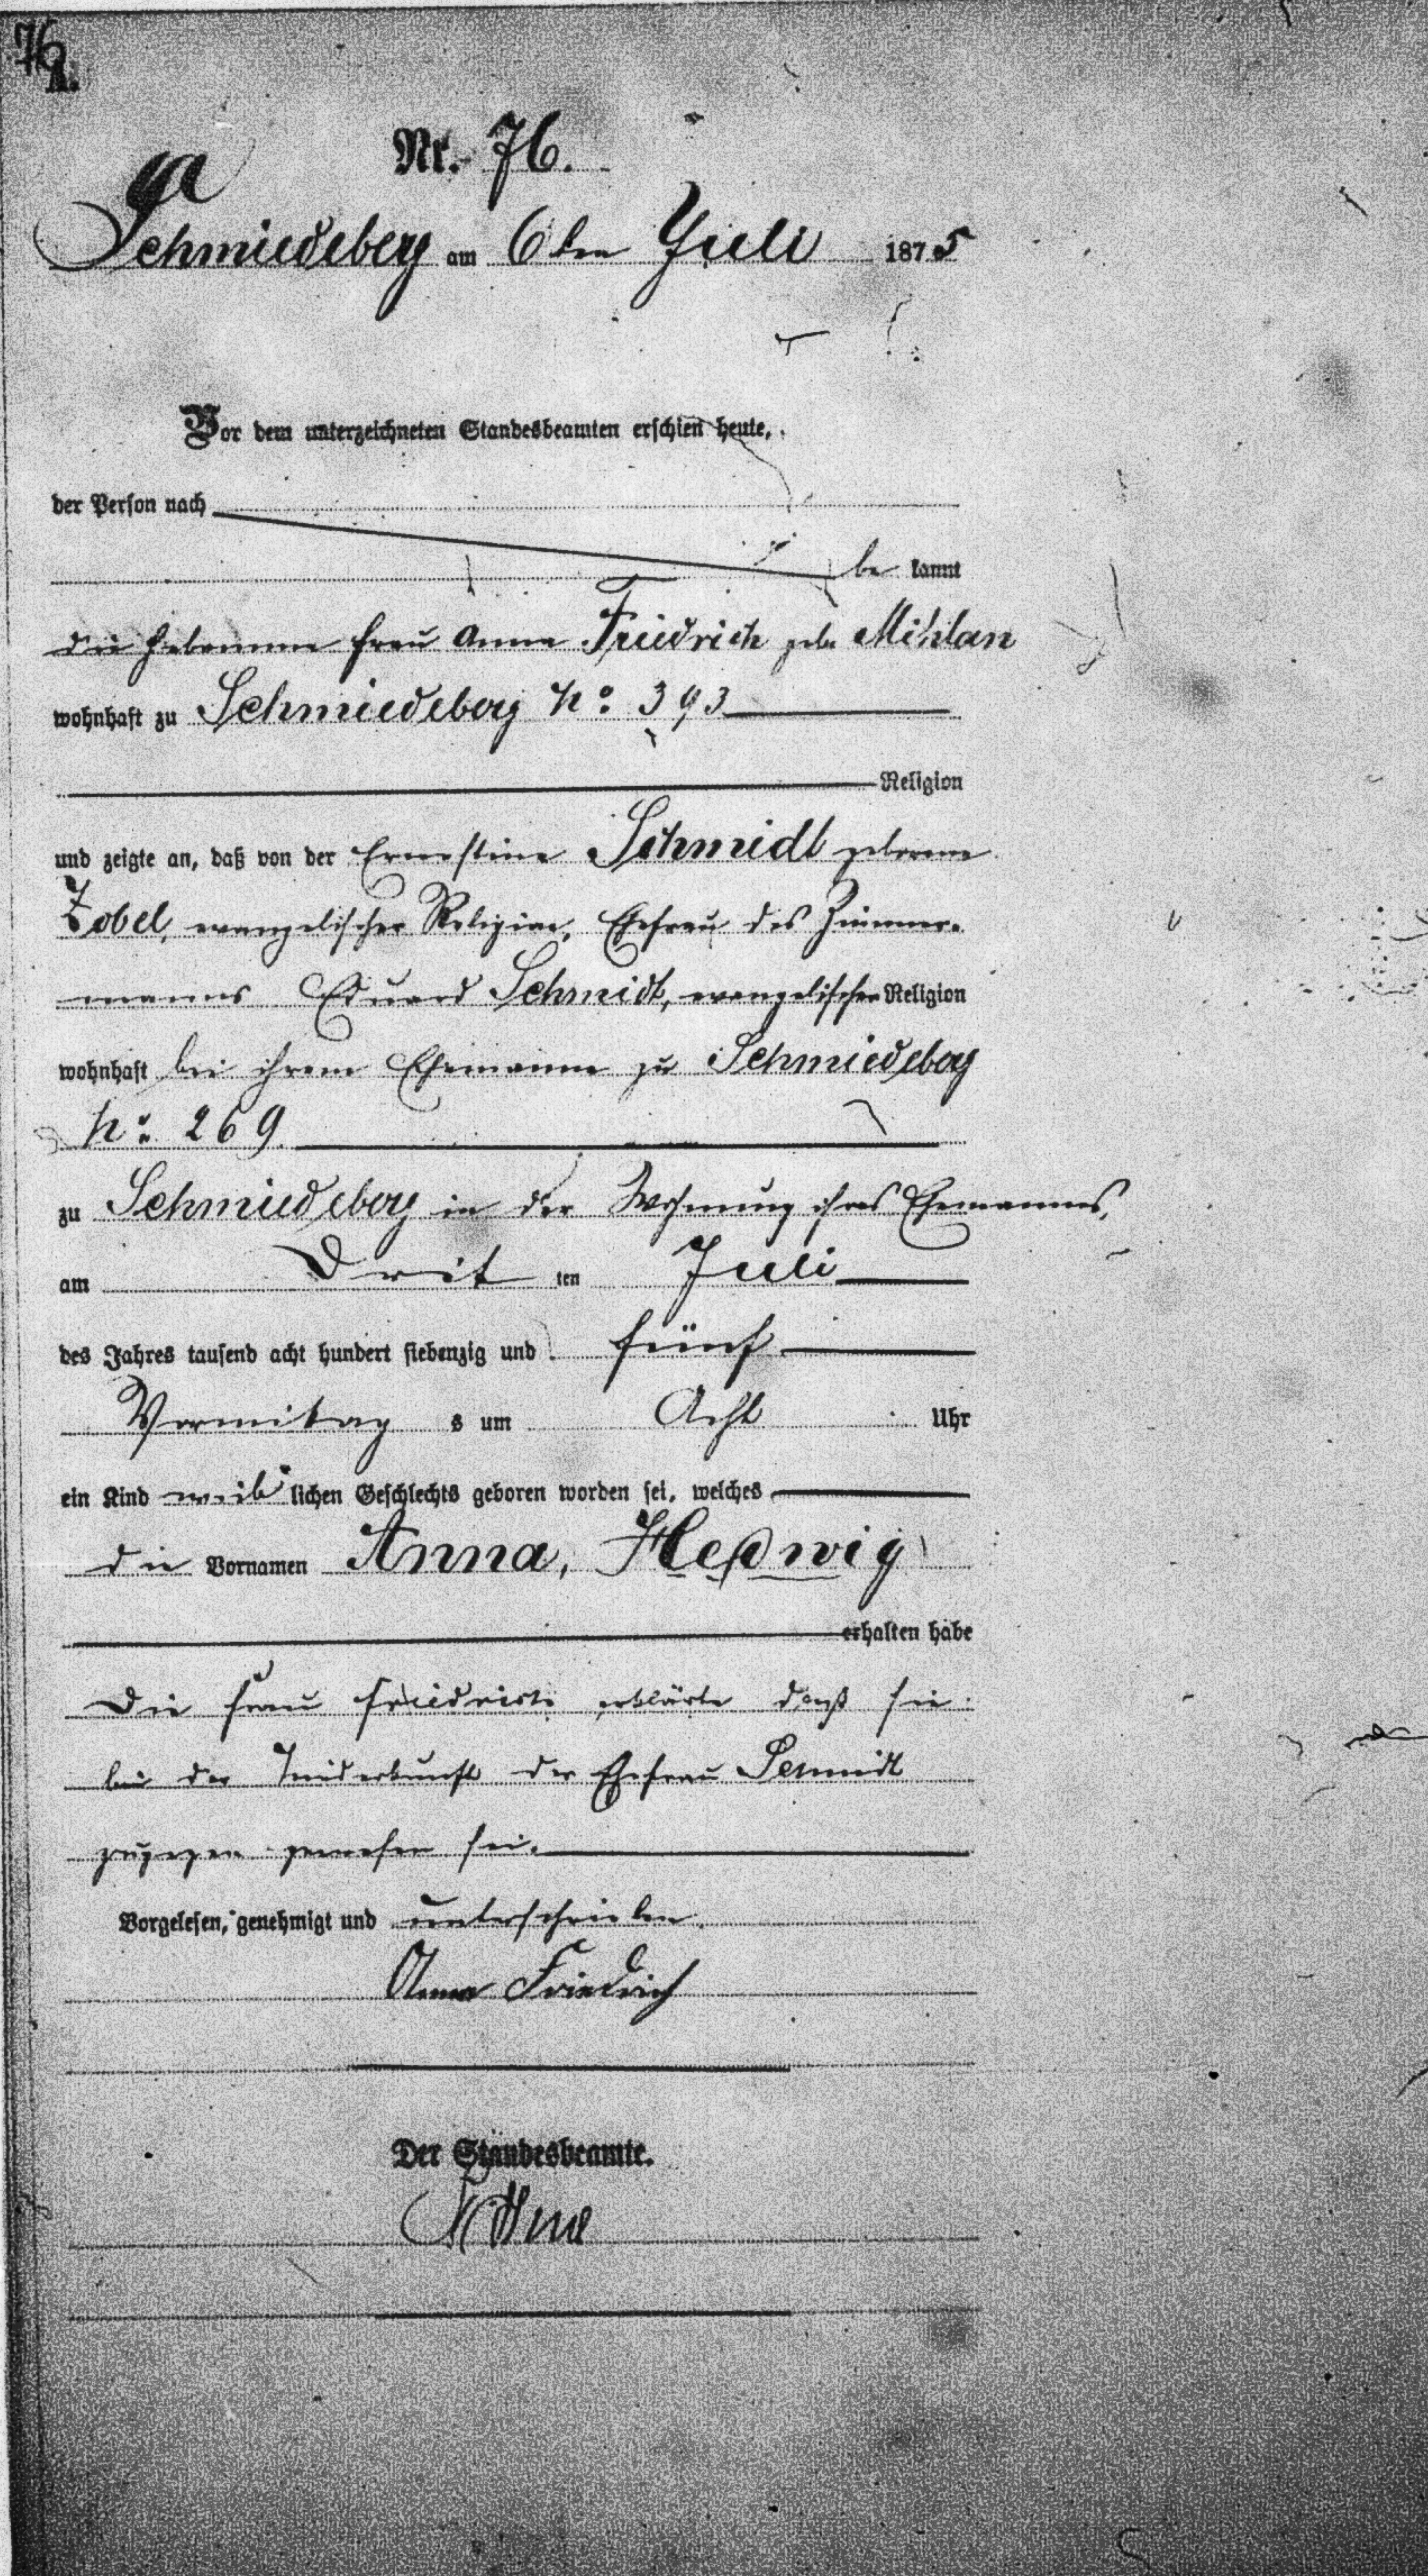 76
Nr. 76.
Schmiedeberg am 6ten Juli 1875
Vor dem unterzeichneten Standesbeamten erschien heute,
der Person nach
be kannt
die Hebamme Frau Anna Friedrich geb. Mihlan
wohnhaft zu Schmiedeberg No: 393
Religion
und zeigte an, daß von der Ernestine Schmidt geborene
Zobel, evangelischer Religion, Ehefrau des Zimmer-
manns Eduard Schmidt, evangelischer Religion
wohnhaft bei ihrem Ehemanne zu Schmiedeberg
No: 269
zu Schmiedeberg in der Wohnung ihres Ehemannes,
am Drit ten Juli
des Jahres tausend acht hundert siebenzig und fünf
Vormittag s um Acht Uhr
ein Kind weib lichen Geschlechts geboren worden sei, welches
die Vornamen Anna, Hedwig
erhalten habe
Die Frau Friedrich erklärte daß sie
bei der Niederkunft der Ehefrau Schmidt
zugegen gewesen sei.
Vorgelesen, genehmigt und unterschrieben.
Anna Friedrich
Der Standesbeamte.